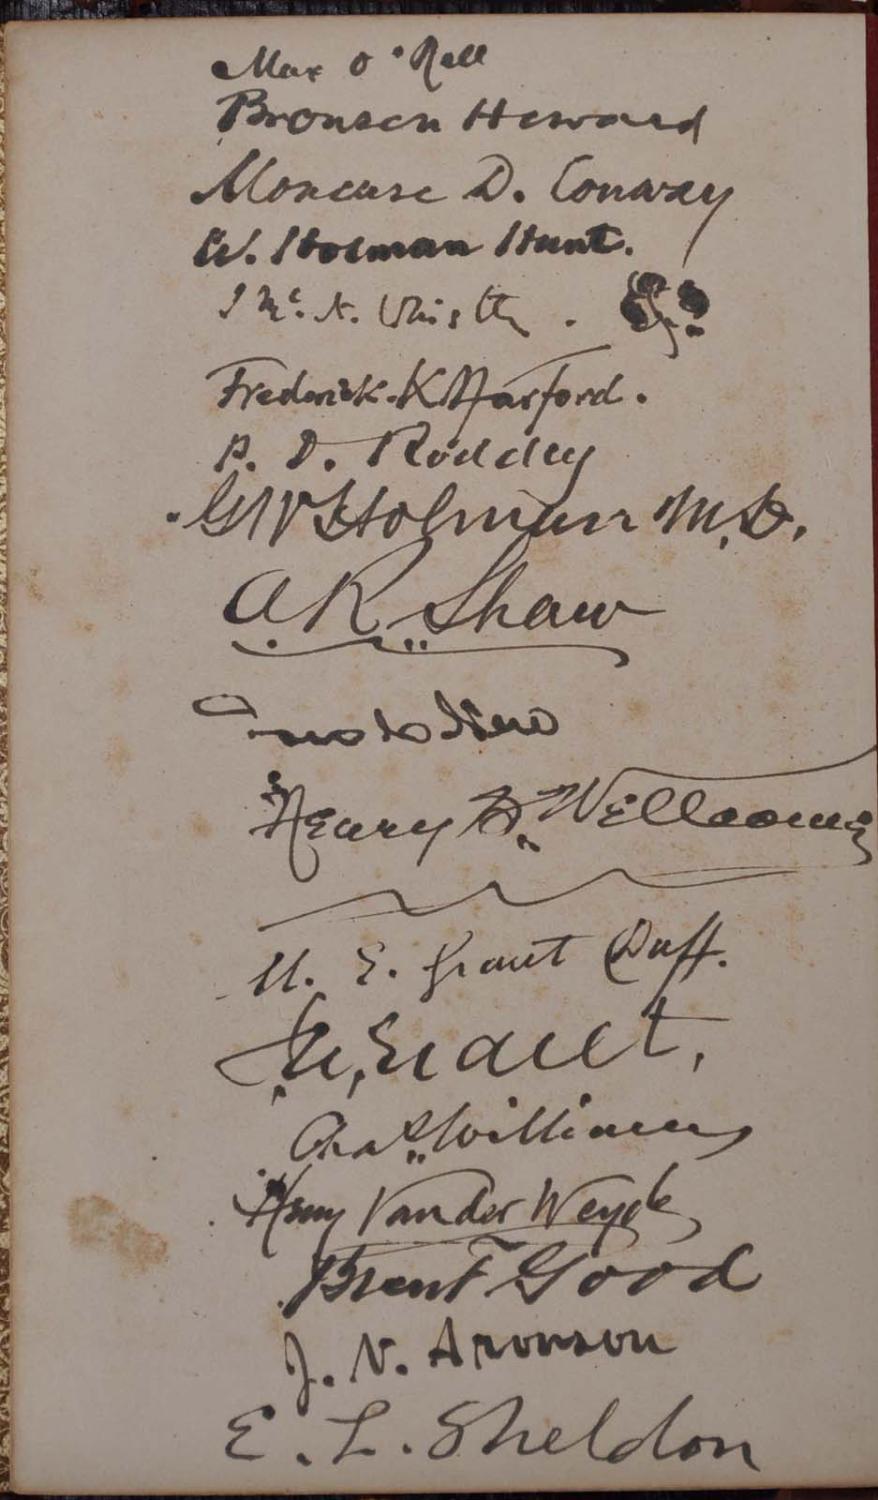 Max O'Rell
Bronson Howard
Moncure D. Conway
W. Holman Hunt.
J Mc. N. Whistler.
Frederick. K Harford.
P. D. Roddey
G W Holman M.D.
A R Shaw
Henry S. Wellcome
M. E. Grant Duff.
Chas Williams
Henry Van der Weyde
Brent Good
J. N. Aronson
E. L. Sheldon